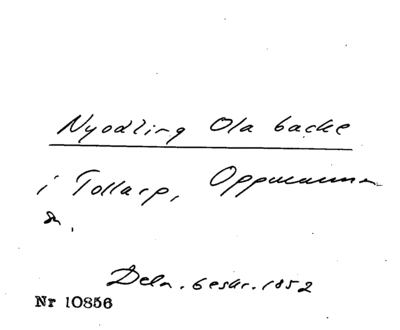 Nyodling Ola backe
i Tollarp, Oppmanna
sn.
Deln. beskr. 1852
Nr 10856